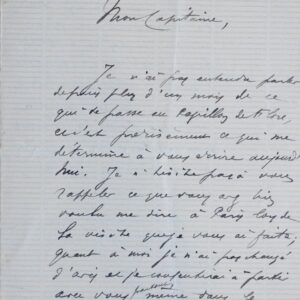 Mon Capitaine,
Je n'ai pas entendu parler
depuis plus d'un mois de ce
qui se passe au Pavillon de Flore,
c'est précisément ce qui me
détermine à vous écrire aujourd'
hui. Je n'hésite pas à vous
rappeler ce que vous avez bien
voulu me dire à Paris lors de
la visite que je vous ai faite;
quant à moi je n'ai pas changé
d'avis et je consentirai à partir
avec vous partout même dans le